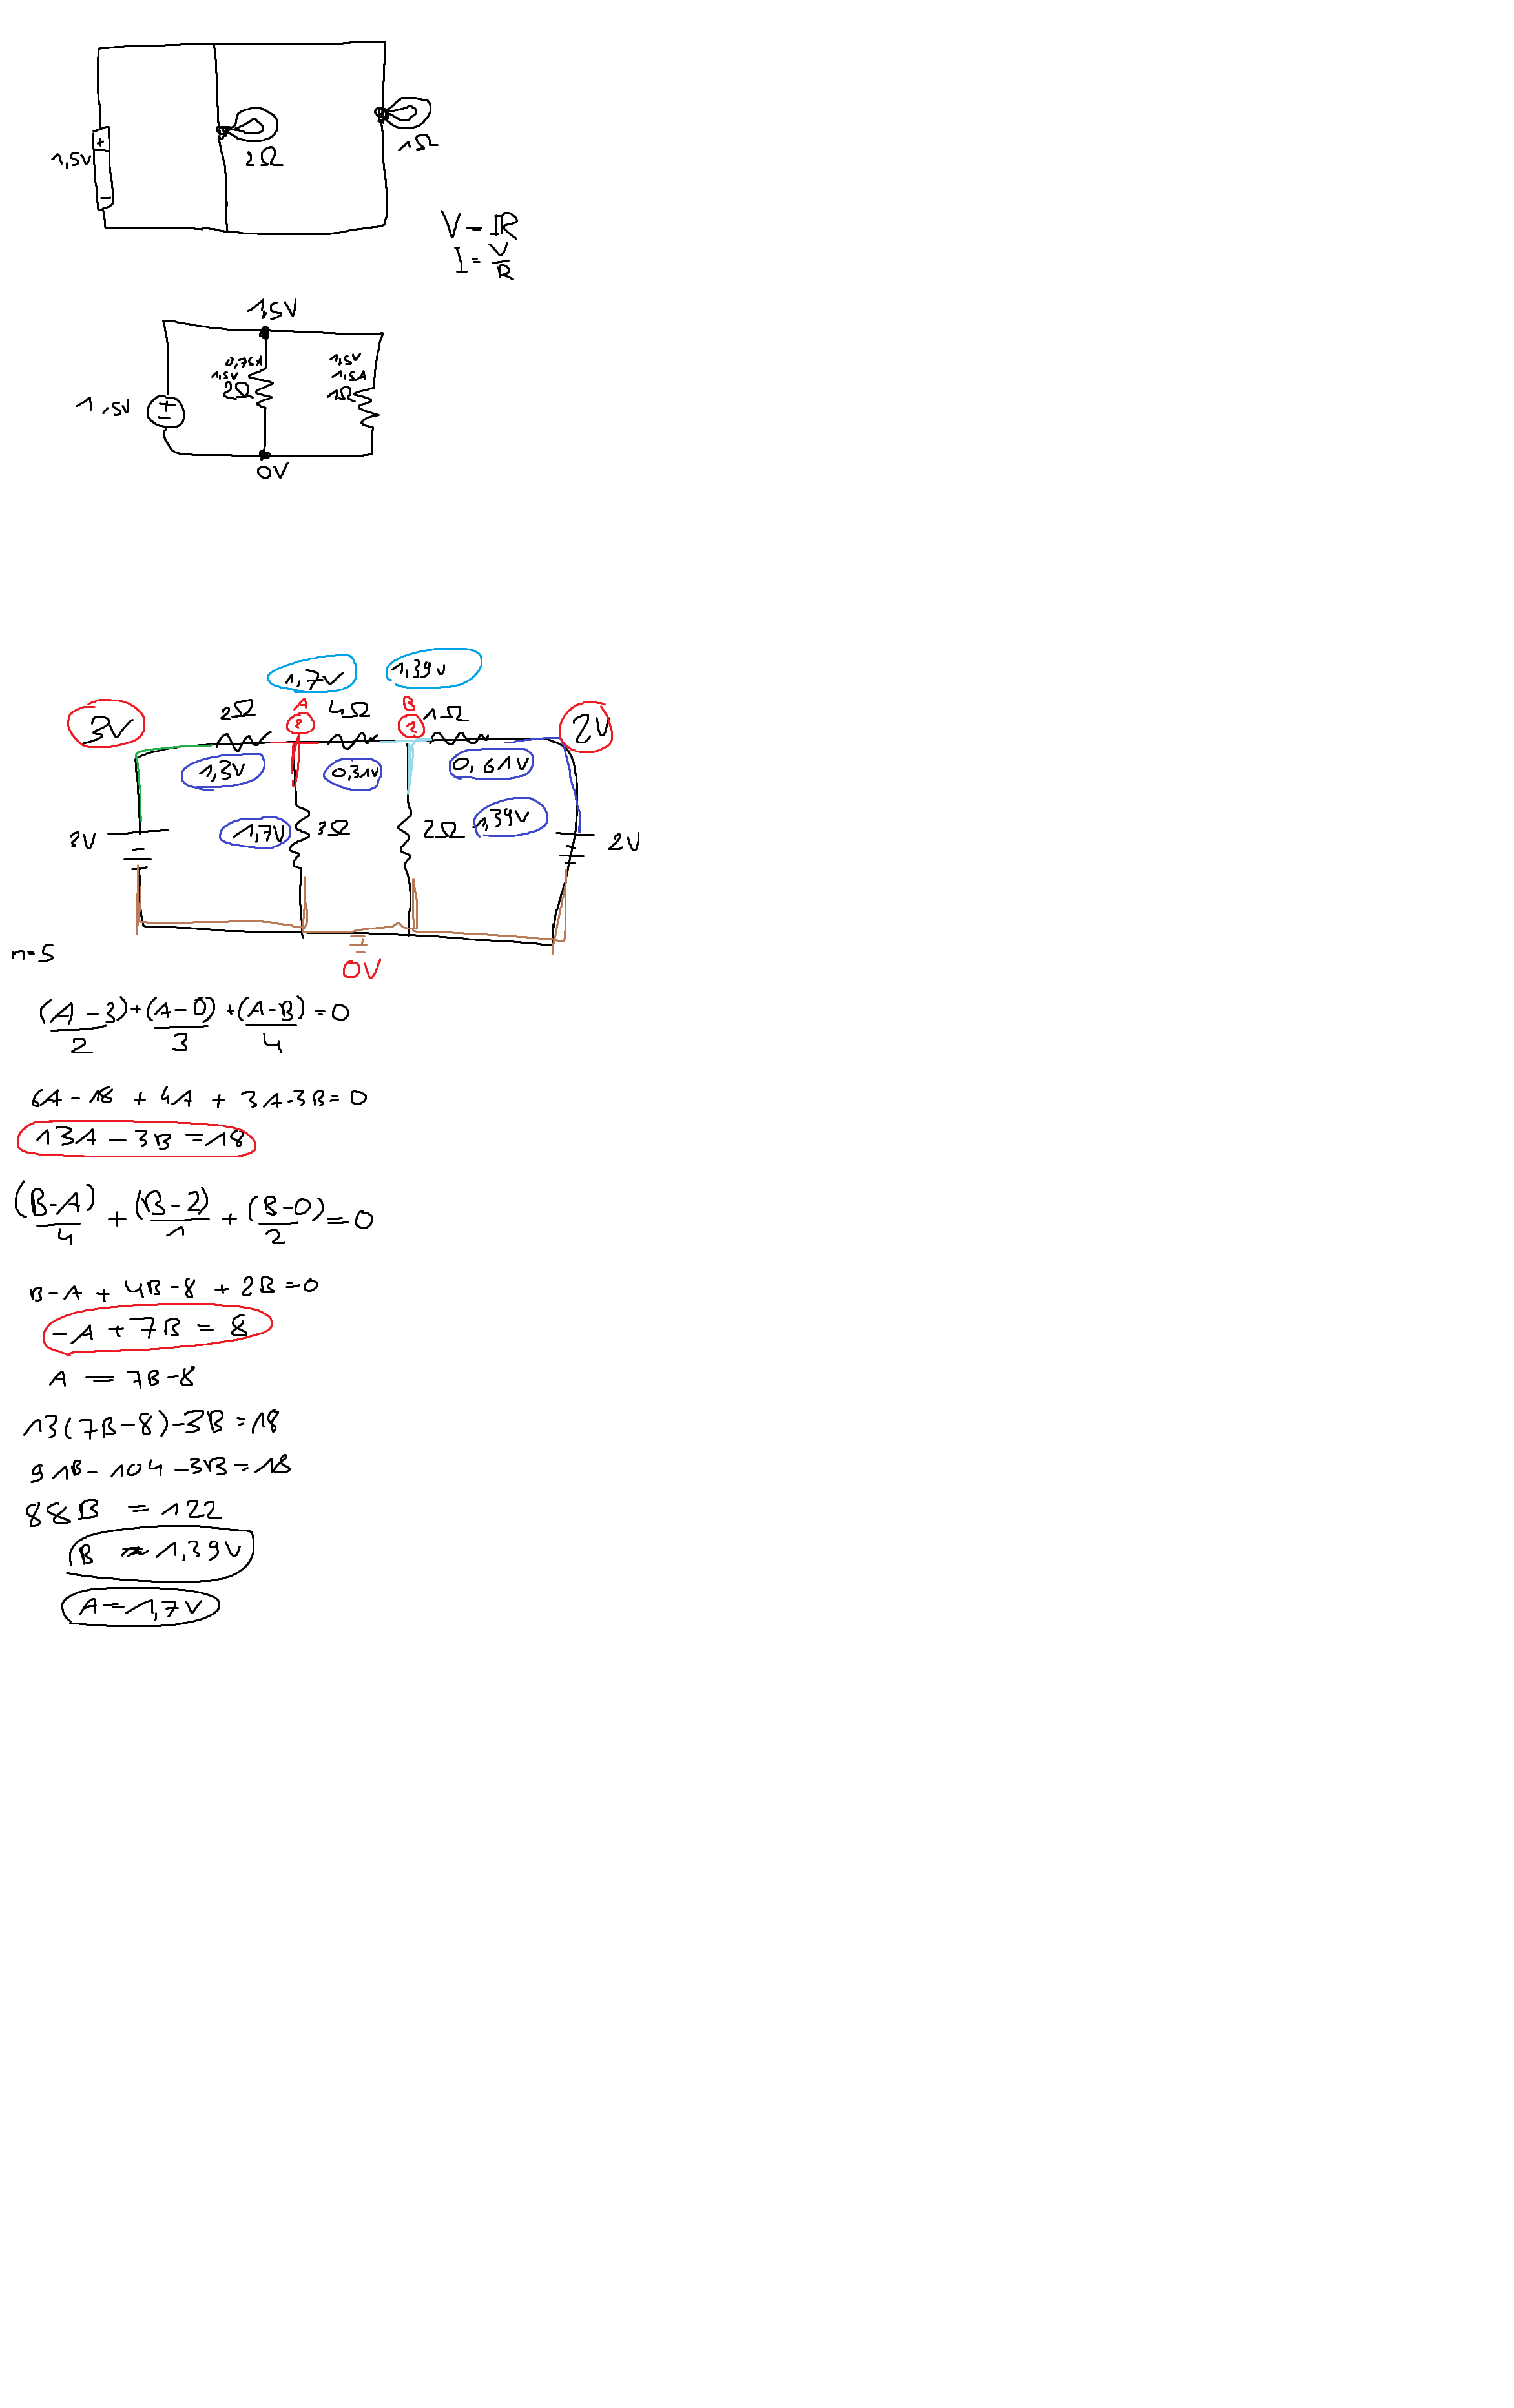 1,5V
+
2Ω
1Ω
−
V = IR
I = V/R
1,5V
0,75A
1,5V
2Ω
1,5V
1,5A
1Ω
1,5V
+
−
0V
1,7V
1,39V
3V
2Ω
A
4Ω
B
1Ω
2V
1,3V
0,31V
0,61V
3V
1,7V
3Ω
2Ω
1,39V
2V
n=5
0V
(A-3)/2 + (A-0)/3 + (A-B)/4 = 0
6A - 18 + 4A + 3A - 3B = 0
13A - 3B = 18
(B-A)/4 + (B-2)/1 + (B-0)/2 = 0
B-A + 4B-8 + 2B = 0
-A + 7B = 8
A = 7B-8
13(7B-8)-3B=18
91B - 104 - 3B = 18
88B = 122
B ≈ 1,39V
A = 1,7V